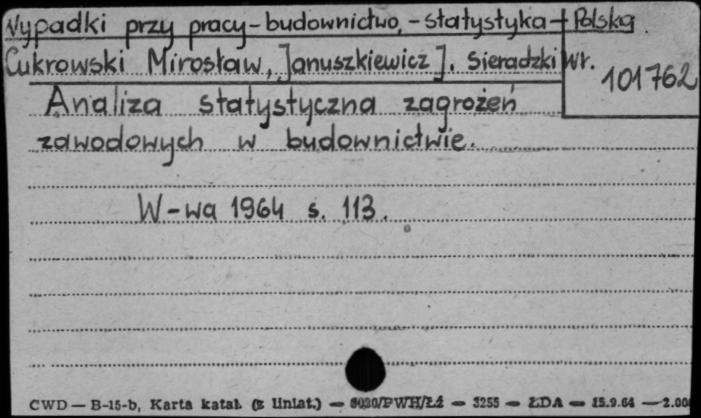 Wypadki przy pracy - budownictwo, - statystyka - Polska
Cukrowski Mirosław, Januszkiewicz J. Sieradzki Wł.
101762
Analiza statystyczna zagrożeń
zawodowych w budownictwie.
W-wa 1964 s. 113.
CWD — B-15-b, Karta katal. (z liniat.) — 8020/PWH/ŁŻ — 3255 — ŁDA — 15.9.64 — 2.00